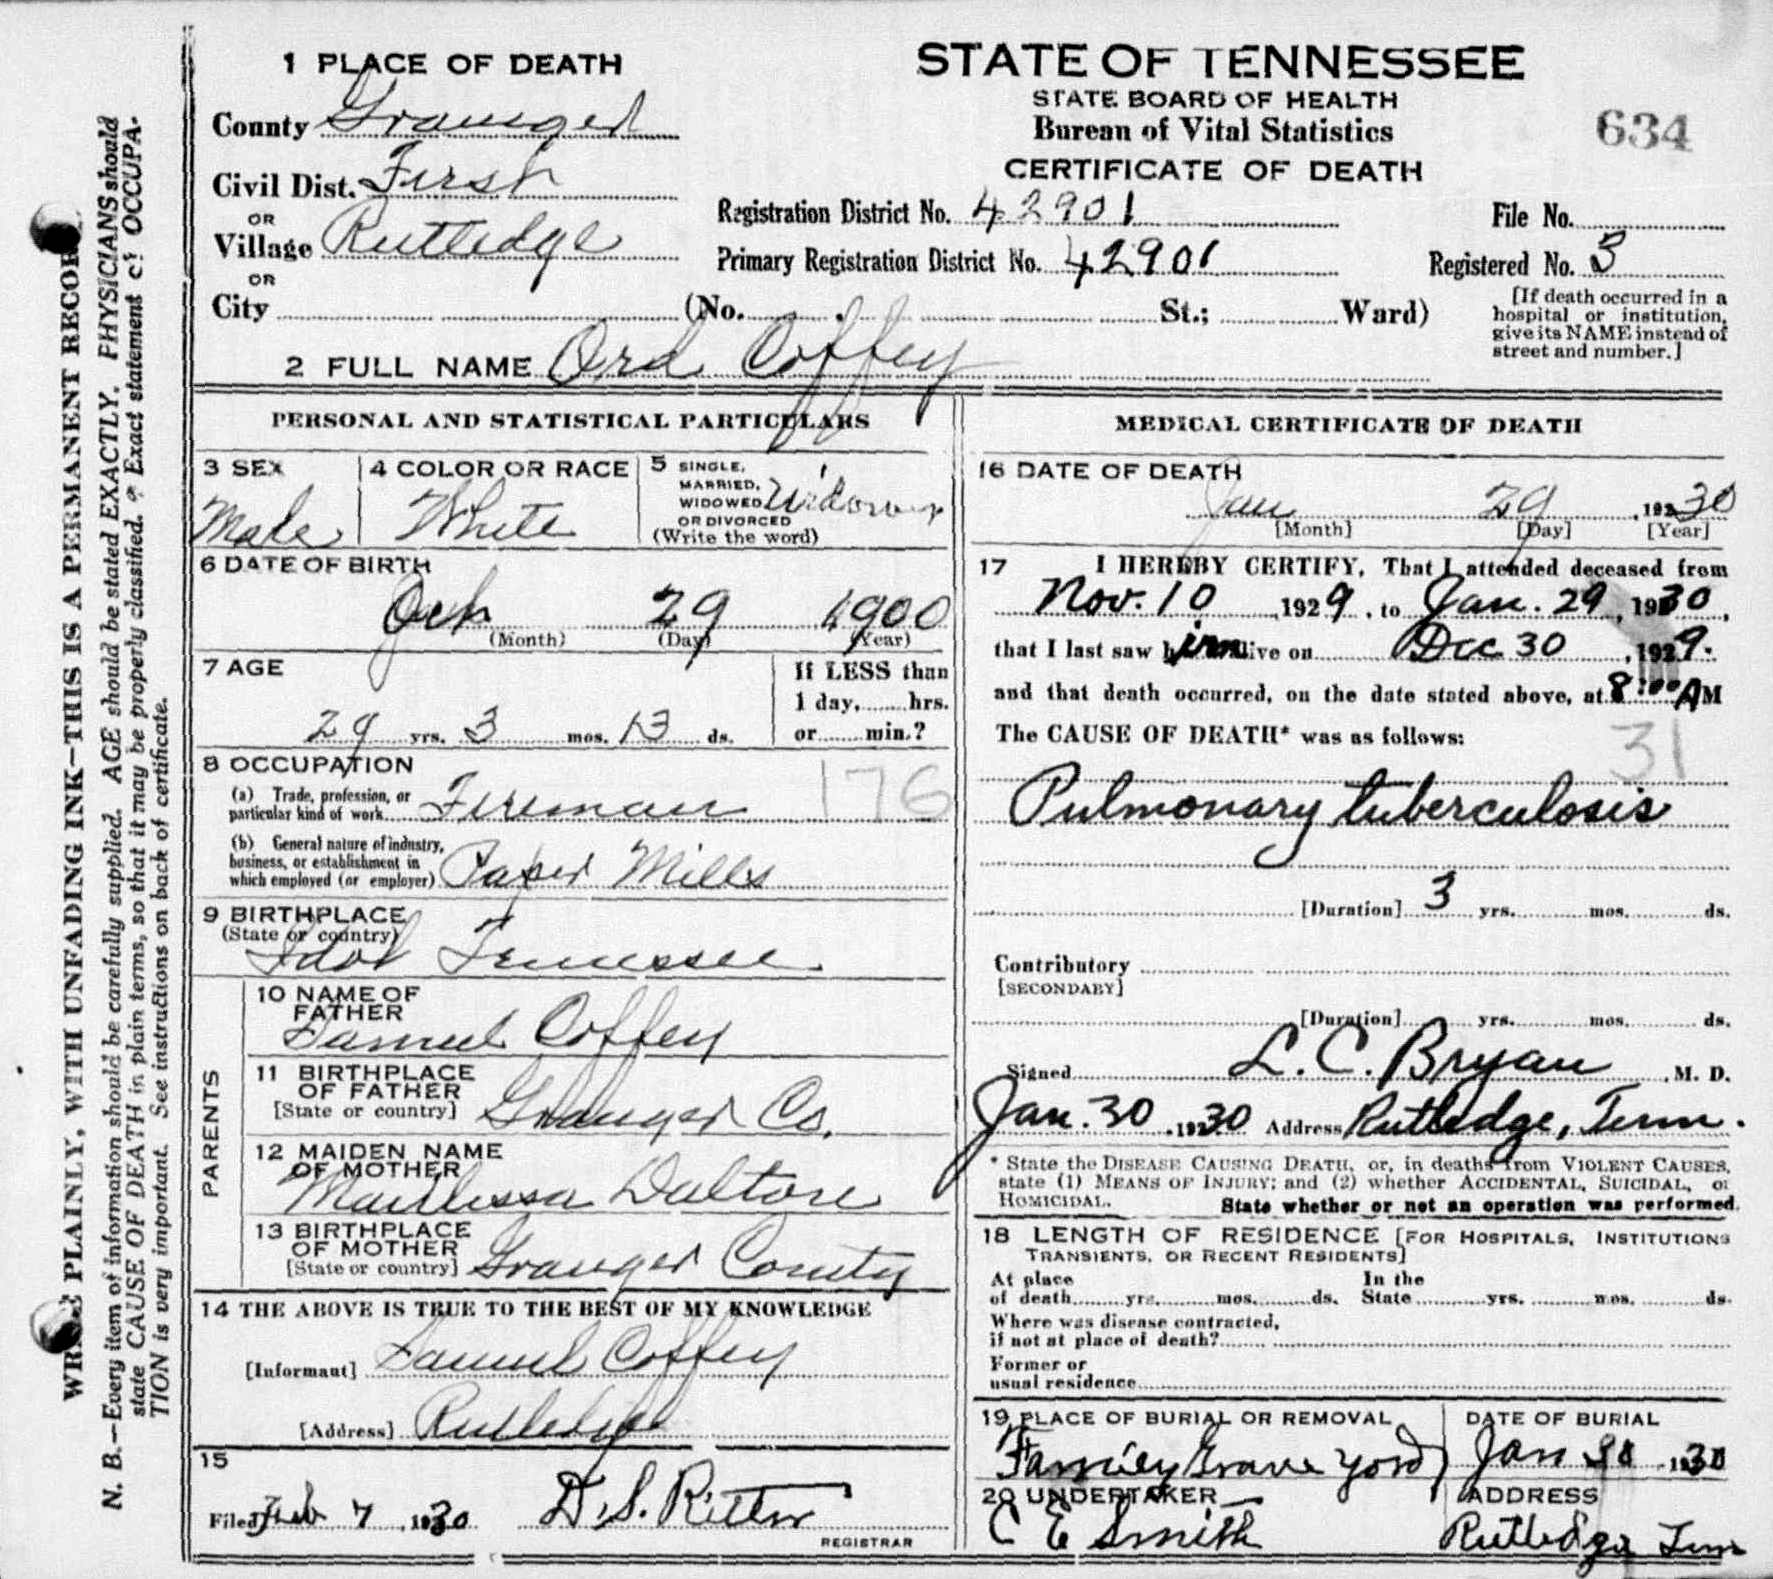 1 PLACE OF DEATH
County Granger
Civil Dist. First
OR
Village Rutledge
OR
City (No. St.; Ward)
STATE OF TENNESSEE
STATE BOARD OF HEALTH
Bureau of Vital Statistics
CERTIFICATE OF DEATH
634
Registration District No. 42901
Primary Registration District No. 42901
File No.
Registered No. 3
[If death occurred in a
hospital or institution,
give its NAME instead of
street and number.]
2 FULL NAME Ord Coffey
PERSONAL AND STATISTICAL PARTICULARS
3 SEX
Male
4 COLOR OR RACE
White
5 SINGLE,
MARRIED,
WIDOWED
OR DIVORCED
(Write the word)
Widower
6 DATE OF BIRTH
Oct 29 1900
(Month) (Day) (Year)
7 AGE
29 yrs. 3 mos. 13 ds.
If LESS than
1 day, hrs.
or min.?
8 OCCUPATION
(a) Trade, profession, or
particular kind of work Fireman
176
(b) General nature of industry,
business, or establishment in
which employed (or employer) Paper Mills
9 BIRTHPLACE
(State or country)
Idol Tennessee
PARENTS
10 NAME OF
FATHER
Samuel Coffey
11 BIRTHPLACE
OF FATHER
[State or country] Granger Co.
12 MAIDEN NAME
OF MOTHER
Dalton
13 BIRTHPLACE
OF MOTHER
[State or country] Granger County
14 THE ABOVE IS TRUE TO THE BEST OF MY KNOWLEDGE
[Informant] Samuel Coffey
[Address] Rutledge
15
Filed Feb 7, 1930 D. S. Ritter
REGISTRAR
MEDICAL CERTIFICATE OF DEATH
16 DATE OF DEATH
Jan 29, 1930
[Month] [Day] [Year]
17 I HEREBY CERTIFY, That I attended deceased from
Nov. 10, 1929, to Jan. 29, 1930,
that I last saw him alive on Dec 30, 1929.
and that death occurred, on the date stated above, at 8:00 A M
The CAUSE OF DEATH* was as follows:
31
Pulmonary tuberculosis
[Duration] 3 yrs. mos. ds.
Contributory
[SECONDARY]
[Duration] yrs. mos. ds.
Signed L. C. Bryan, M. D.
Jan. 30, 1930 Address Rutledge, Tenn.
* State the DISEASE CAUSING DEATH, or, in deaths from VIOLENT CAUSES,
state (1) MEANS OF INJURY; and (2) whether ACCIDENTAL, SUICIDAL, or
HOMICIDAL. State whether or not an operation was performed.
18 LENGTH OF RESIDENCE [FOR HOSPITALS, INSTITUTIONS
TRANSIENTS, OR RECENT RESIDENTS]
At place
of death yrs. mos. ds.
In the
State yrs. mos. ds.
Where was disease contracted,
if not at place of death?
Former or
usual residence
19 PLACE OF BURIAL OR REMOVAL
Family Grave yord
DATE OF BURIAL
Jan 30, 1930
20 UNDERTAKER
C E Smith
ADDRESS
Rutledge Tenn
WRITE PLAINLY, WITH UNFADING INK—THIS IS A PERMANENT RECORD
N. B.—Every item of information should be carefully supplied. AGE should be stated EXACTLY. PHYSICIANS should
state CAUSE OF DEATH in plain terms, so that it may be properly classified. Exact statement of OCCUPA-
TION is very important. See instructions on back of certificate.